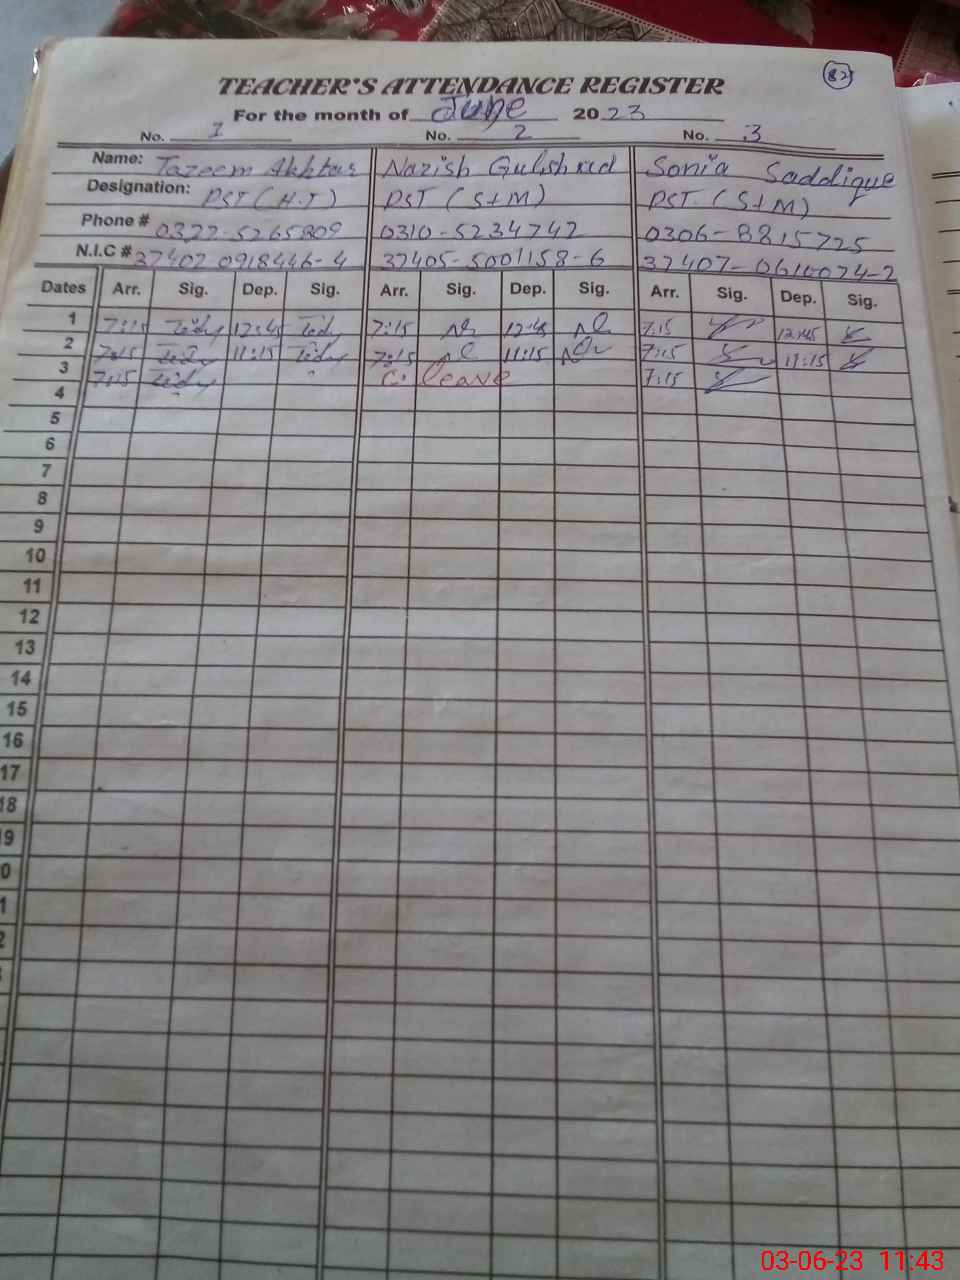 82
TEACHER'S ATTENDANCE REGISTER
For the month of June 2023
No. 1 No. 2 No. 3
Name: Tazeem Akhtar Nazish Gulshad Sonia Saddique
Designation: PST (H.T) PST (S+M) PST (S+M)
Phone # 0322-5265809 0310-5234742 0306-8815725
N.I.C # 37402-0918446-4 37405-5001158-6 37407-0610074-2
Dates Arr. Sig. Dep. Sig. Arr. Sig. Dep. Sig. Arr. Sig. Dep. Sig.
1 7:15 12:45 7:15 12:45 7:15 12:45
2 7:15 11:15 7:15 11:15 7:15 11:15
3 7:15 C. leave 7:15
4
5
6
7
8
9
10
11
12
13
14
15
16
17
18
9
0
1
2
03-06-23 11:43